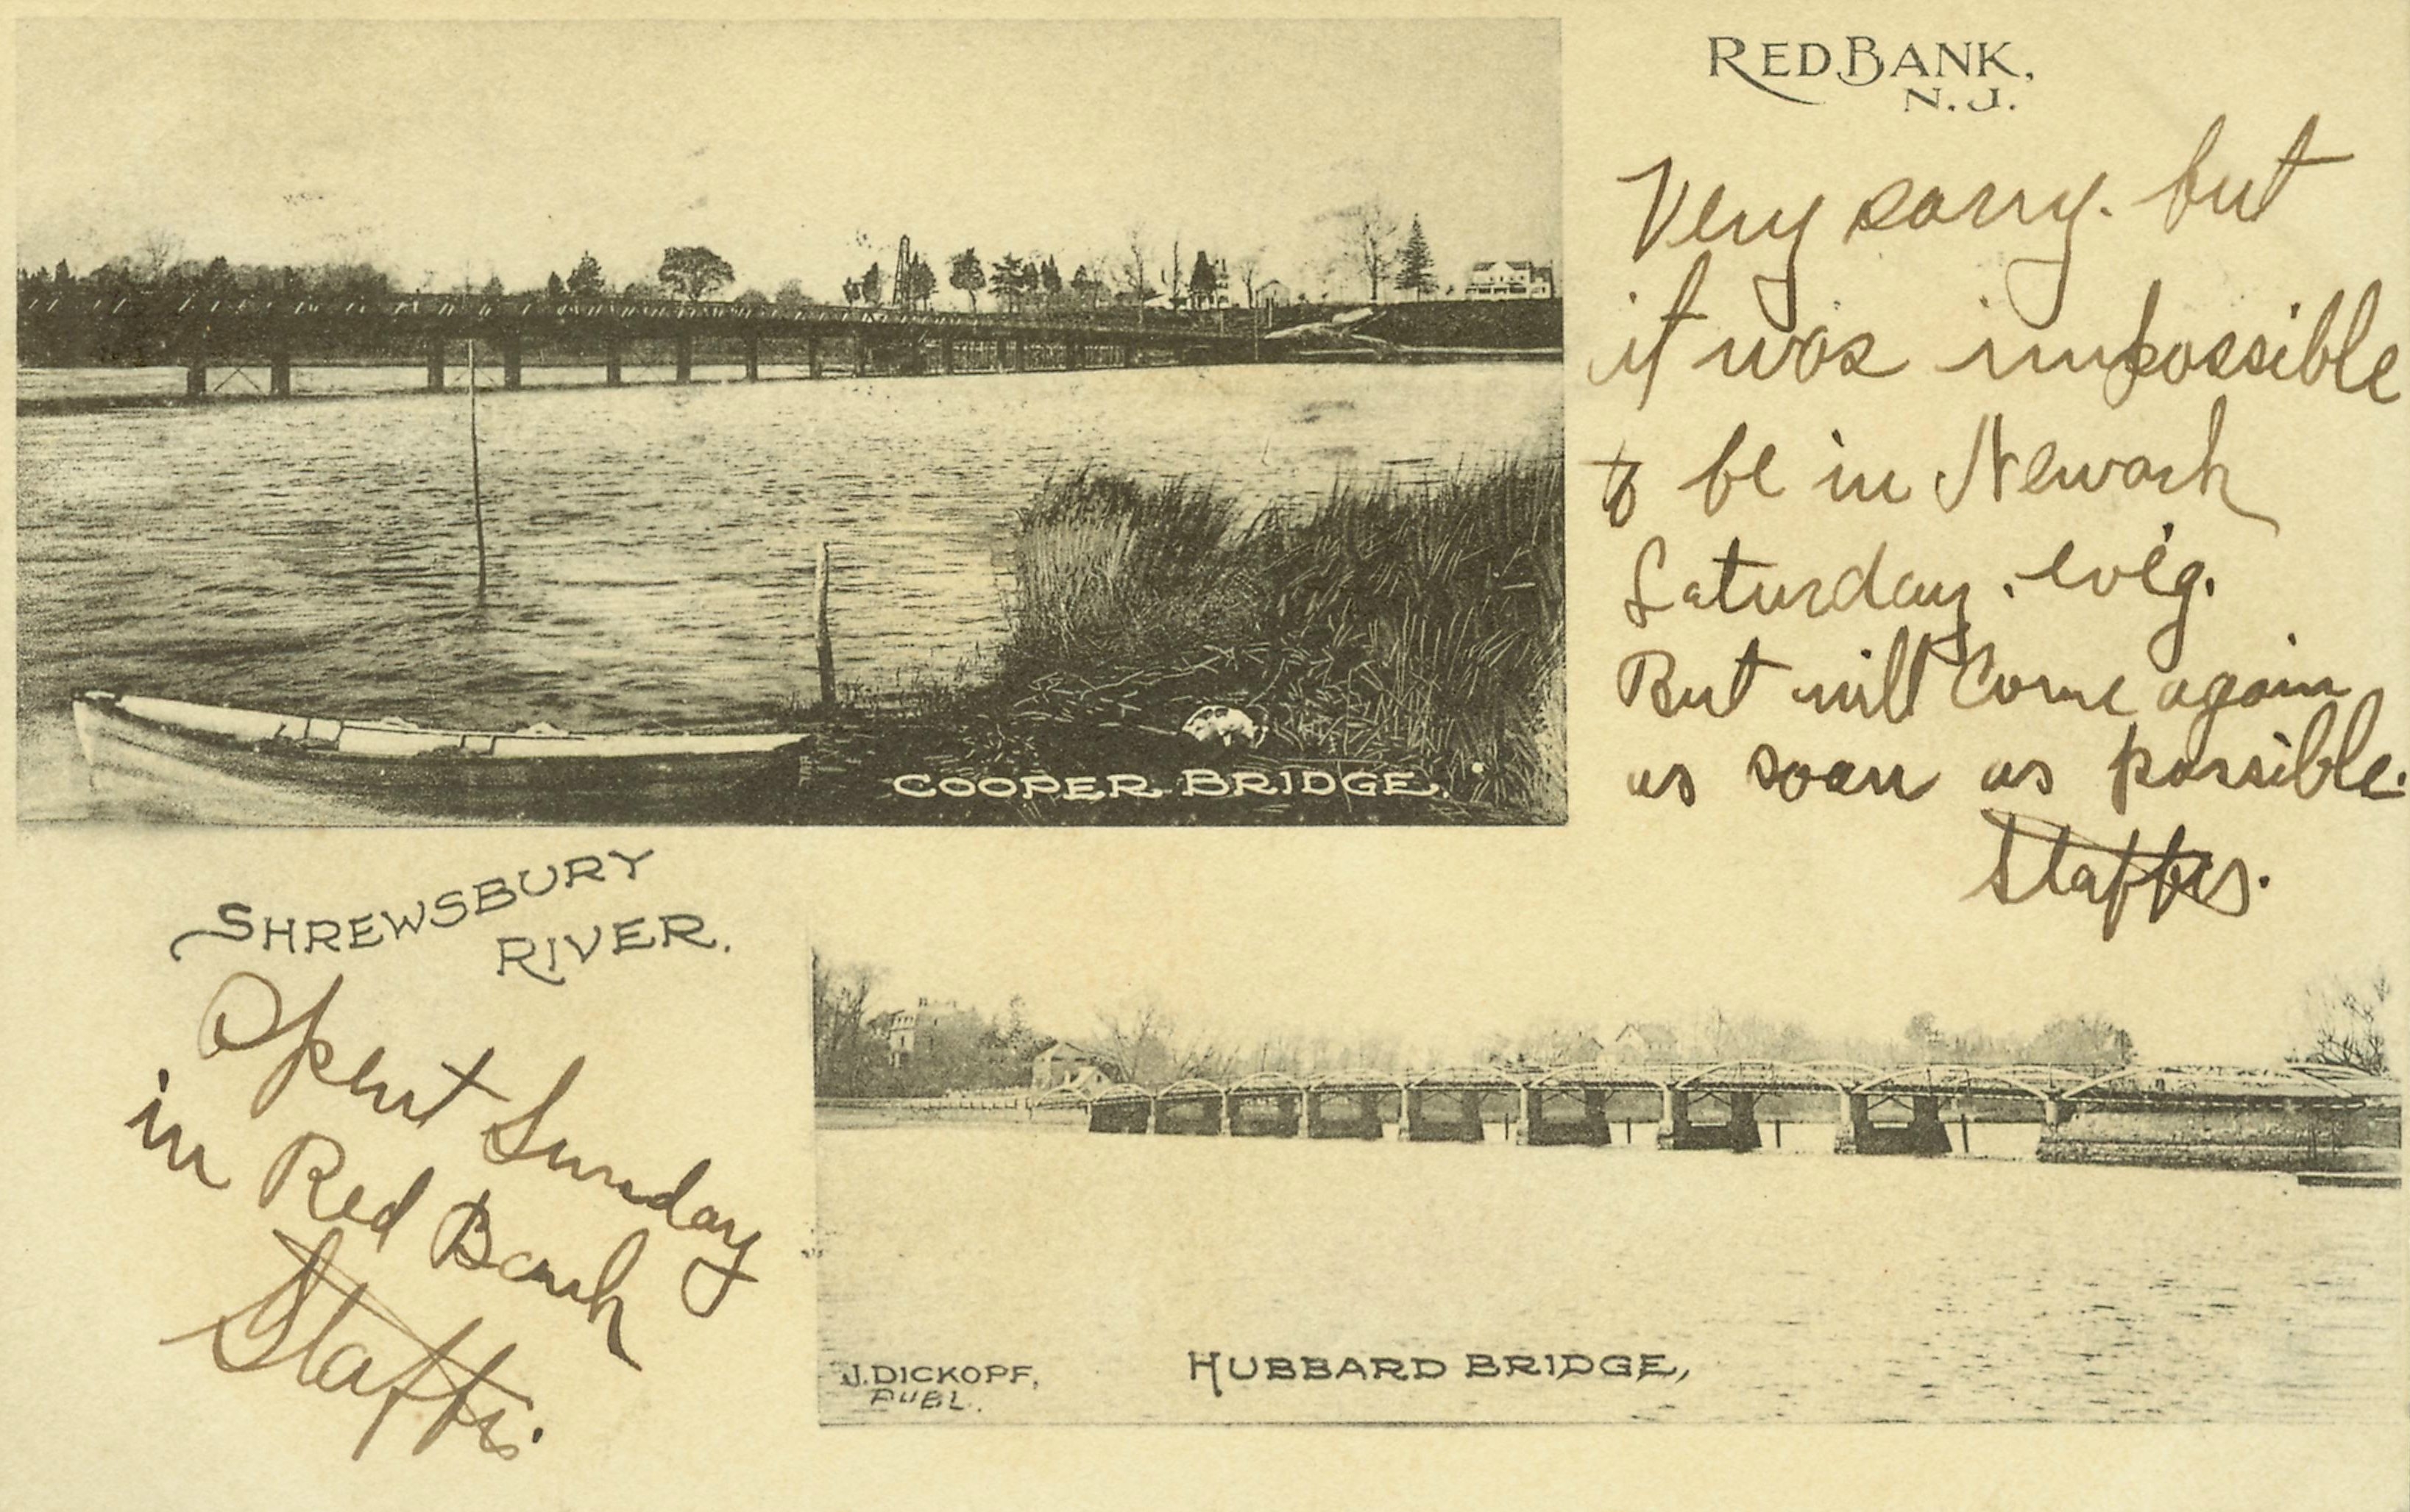 RED BANK,
N. J.
Very sorry. but
it was impossible
to be in Newark
Saturday. ev'g.
But will Come again
as soon as possible.
COOPER BRIDGE.
SHREWSBURY
RIVER.
Spent Sunday
in Red Bank
HUBBARD BRIDGE,
J. DICKOPF,
PUBL.